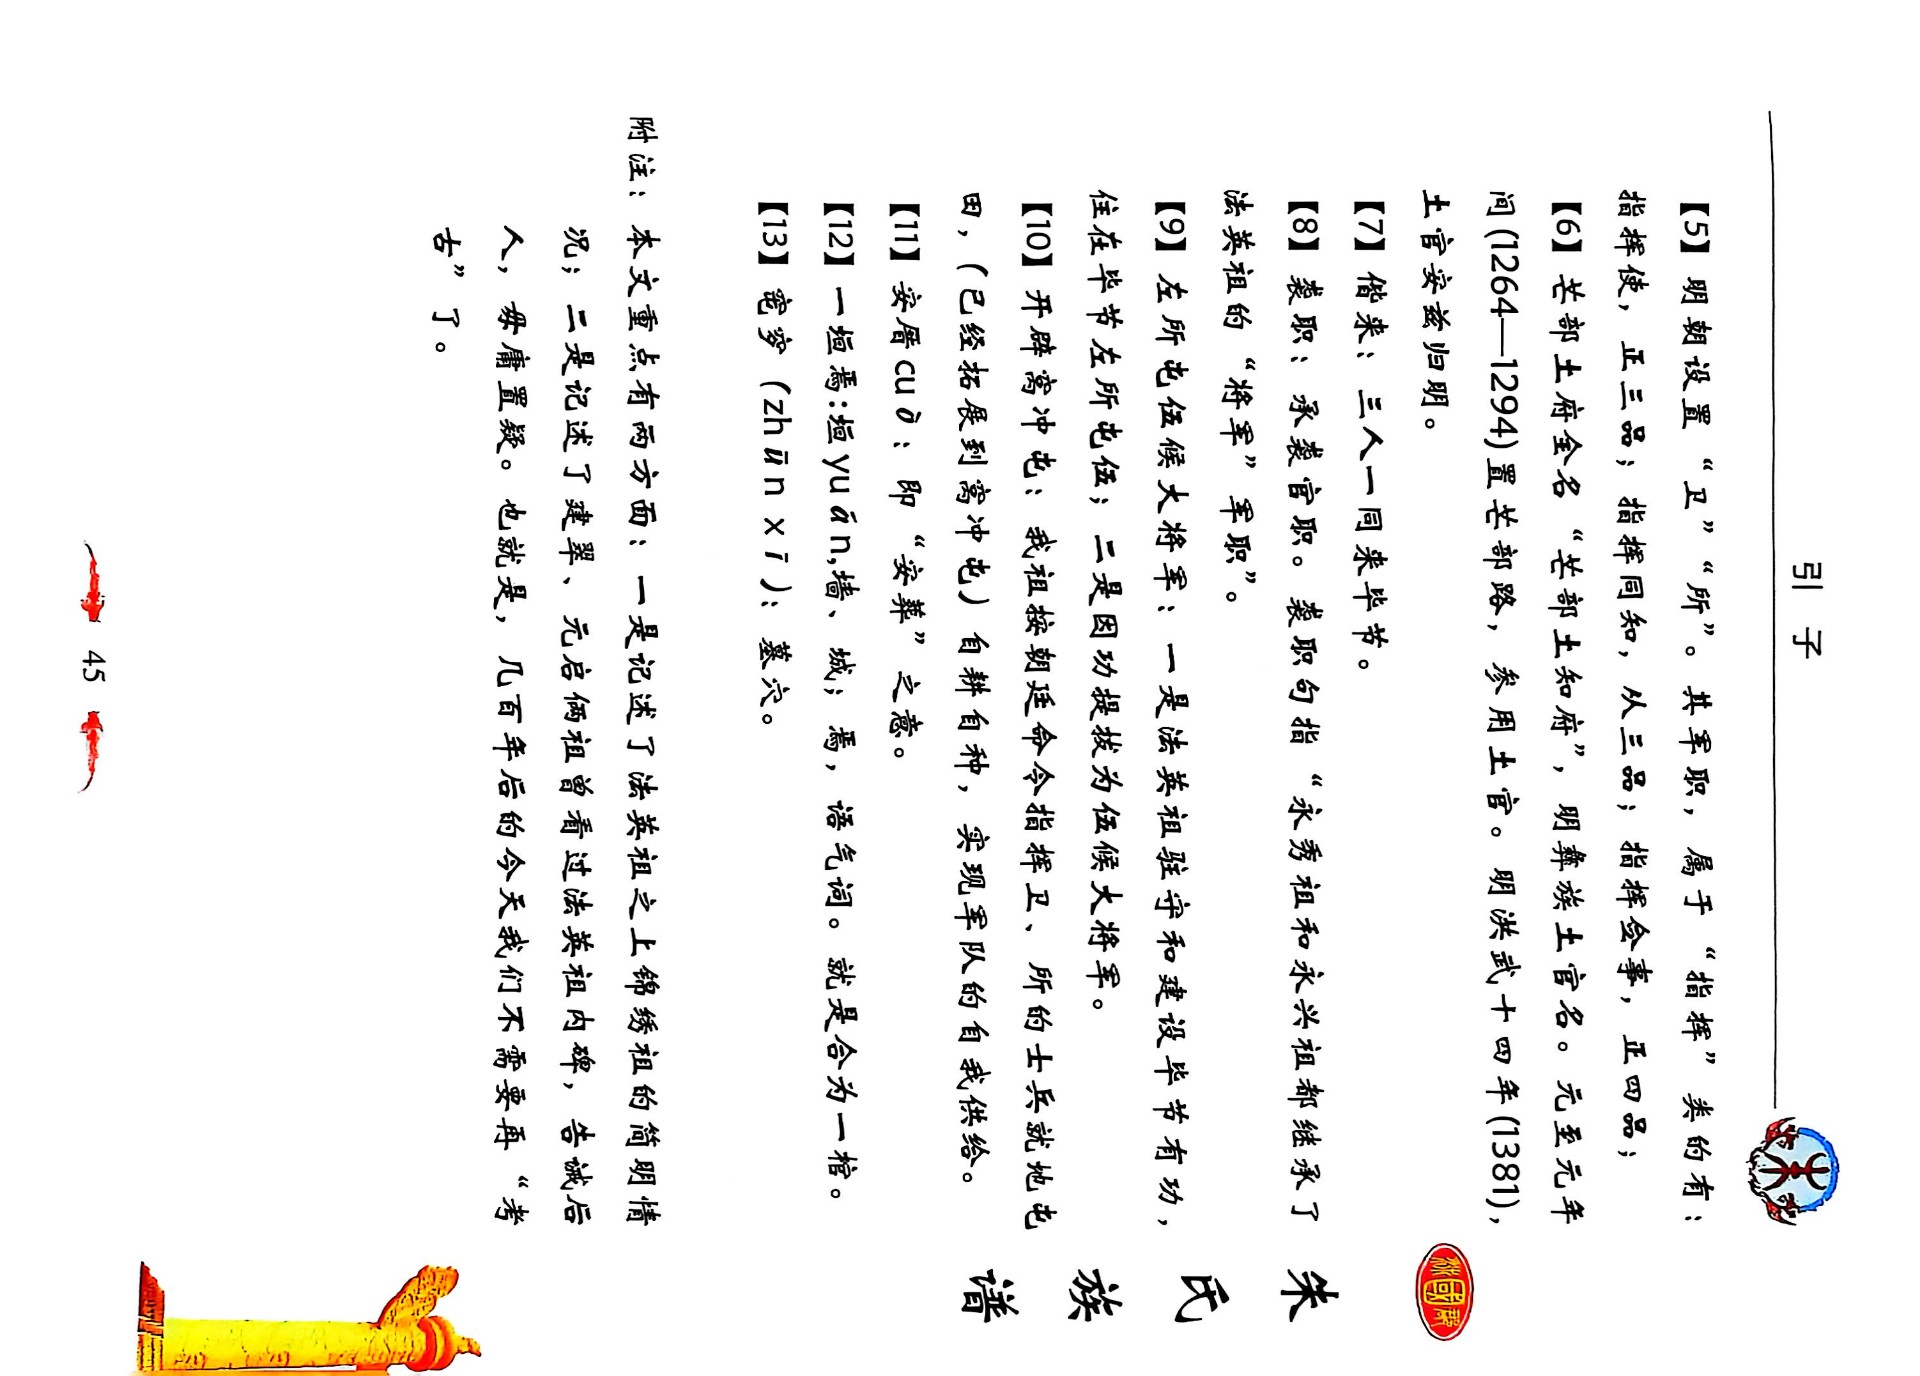 引 子
【5】明朝设置“卫”“所”。其军职，属于“指挥”类的有：
指挥使，正三品；指挥同知，从三品；指挥佥事，正四品；
【6】芒部土府全名“芒部土知府”，明彝族土官名。元至元年
间(1264—1294)置芒部路，参用土官。明洪武十四年(1381)，
土官安兹归明。
【7】偕来：三人一同来毕节。
【8】袭职：承袭官职。袭职句指“永秀祖和永兴祖都继承了
法英祖的“将军”军职”。
【9】左所屯伍候大将军：一是法英祖驻守和建设毕节有功，
住在毕节左所屯伍；二是因功提拔为伍候大将军。
【10】开辟窝冲屯：我祖按朝廷命令指挥卫、所的士兵就地屯
田，（已经拓展到窝冲屯）自耕自种，实现军队的自我供给。
【11】安厝cuò：即“安葬”之意。
【12】一垣焉:垣yuán,墙、城；焉，语气词。就是合为一棺。
【13】窀穸（zhūn xī）：墓穴。
附注：本文重点有两方面：一是记述了法英祖之上锦绣祖的简明情
况；二是记述了建翠、元启俩祖曾看过法英祖内碑，告诫后
人，毋庸置疑。也就是，几百年后的今天我们不需要再“考
古”了。
朱氏族谱
45